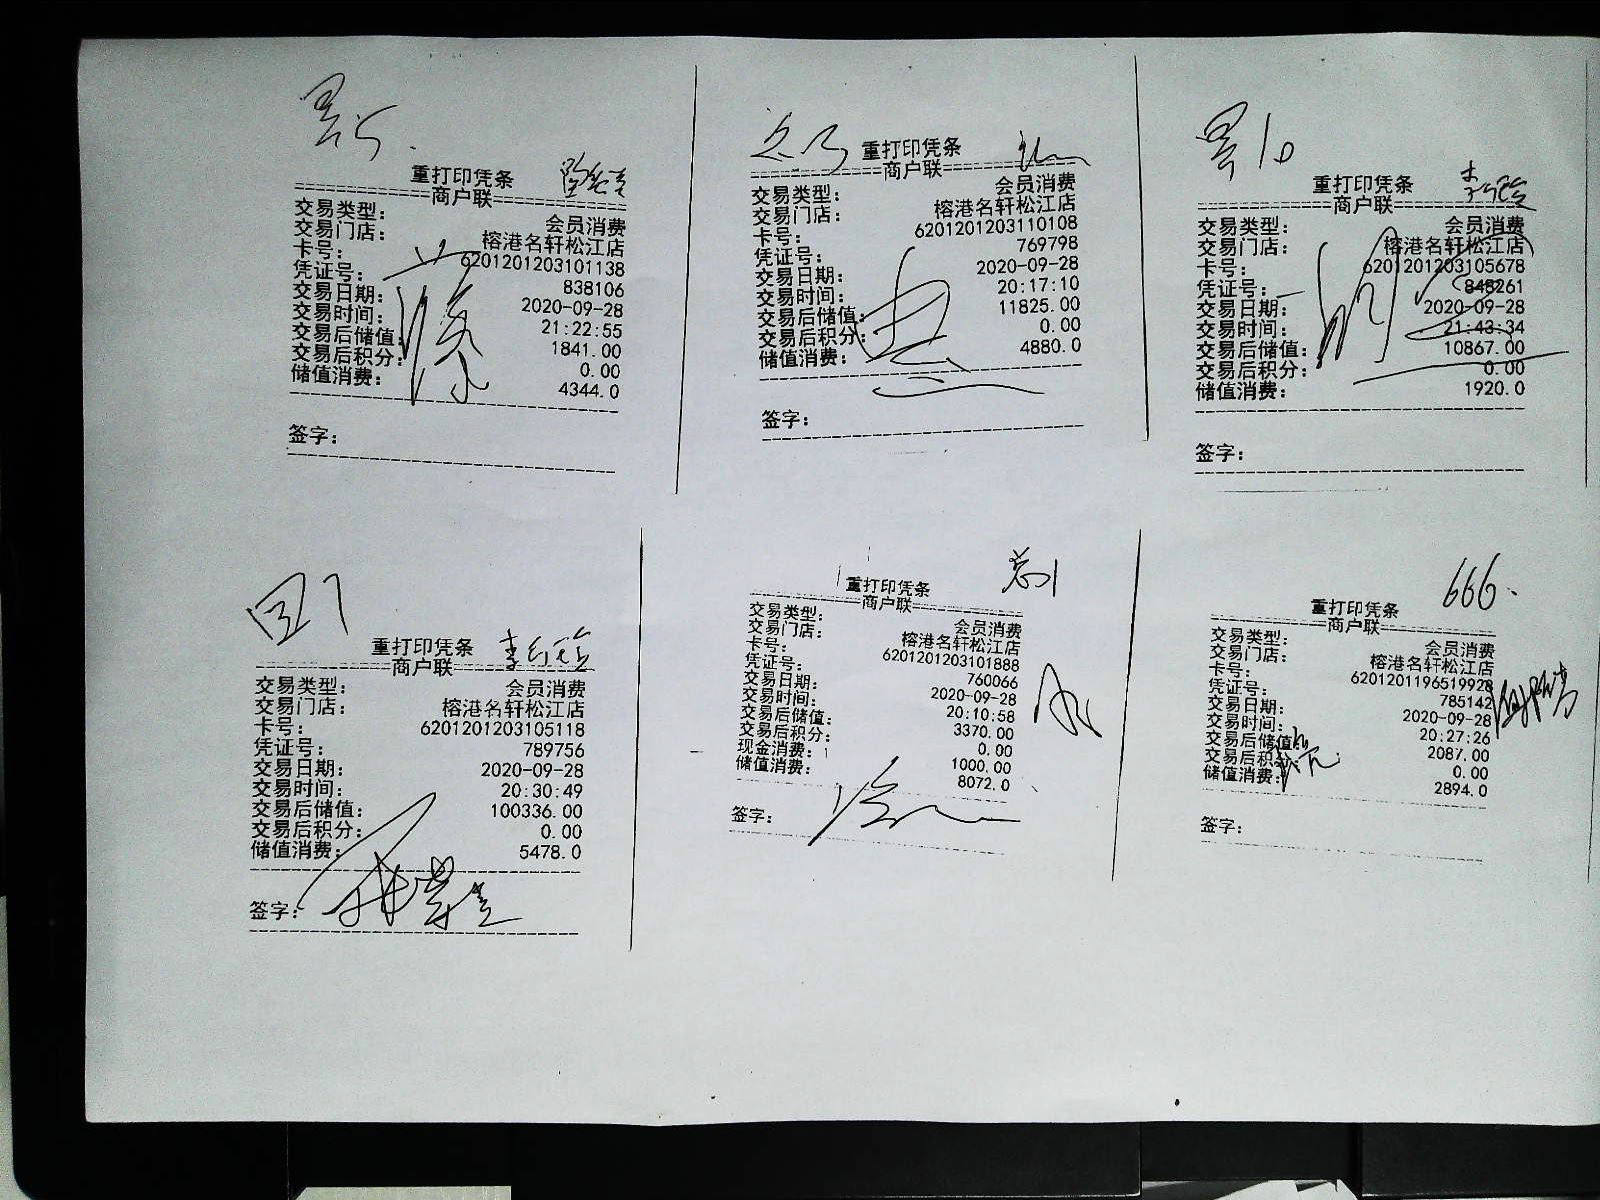 重打印凭条
商户联
交易类型： 会员消费
交易门店： 榕港名轩松江店
卡号： 6201201203101138
凭证号： 838106
交易日期： 2020-09-28
交易时间： 21:22:55
交易后储值： 1841.00
交易后积分： 0.00
储值消费： 4344.0
签字：
重打印凭条
商户联
交易类型： 会员消费
交易门店： 榕港名轩松江店
卡号： 6201201203110108
凭证号： 769798
交易日期： 2020-09-28
交易时间： 20:17:10
交易后储值： 11825.00
交易后积分： 0.00
储值消费： 4880.0
签字：
重打印凭条
商户联
交易类型： 会员消费
交易门店： 榕港名轩松江店
卡号： 6201201203105678
凭证号： 848261
交易日期： 2020-09-28
交易时间： 21:43:34
交易后储值： 10867.00
交易后积分： 0.00
储值消费： 1920.0
签字：
重打印凭条
商户联
交易类型： 会员消费
交易门店： 榕港名轩松江店
卡号： 6201201203105118
凭证号： 789756
交易日期： 2020-09-28
交易时间： 20:30:49
交易后储值： 100336.00
交易后积分： 0.00
储值消费： 5478.0
签字：
重打印凭条
商户联
交易类型： 会员消费
交易门店： 榕港名轩松江店
卡号： 6201201203101888
凭证号： 760066
交易日期： 2020-09-28
交易时间： 20:10:58
交易后储值： 3370.00
交易后积分： 0.00
现金消费： 1000.00
储值消费： 8072.0
签字：
666
重打印凭条
商户联
交易类型： 会员消费
交易门店： 榕港名轩松江店
卡号： 6201201196519928
凭证号： 785142
交易日期： 2020-09-28
交易时间： 20:27:26
交易后储值： 2087.00
交易后积分： 0.00
储值消费： 2894.0
签字：